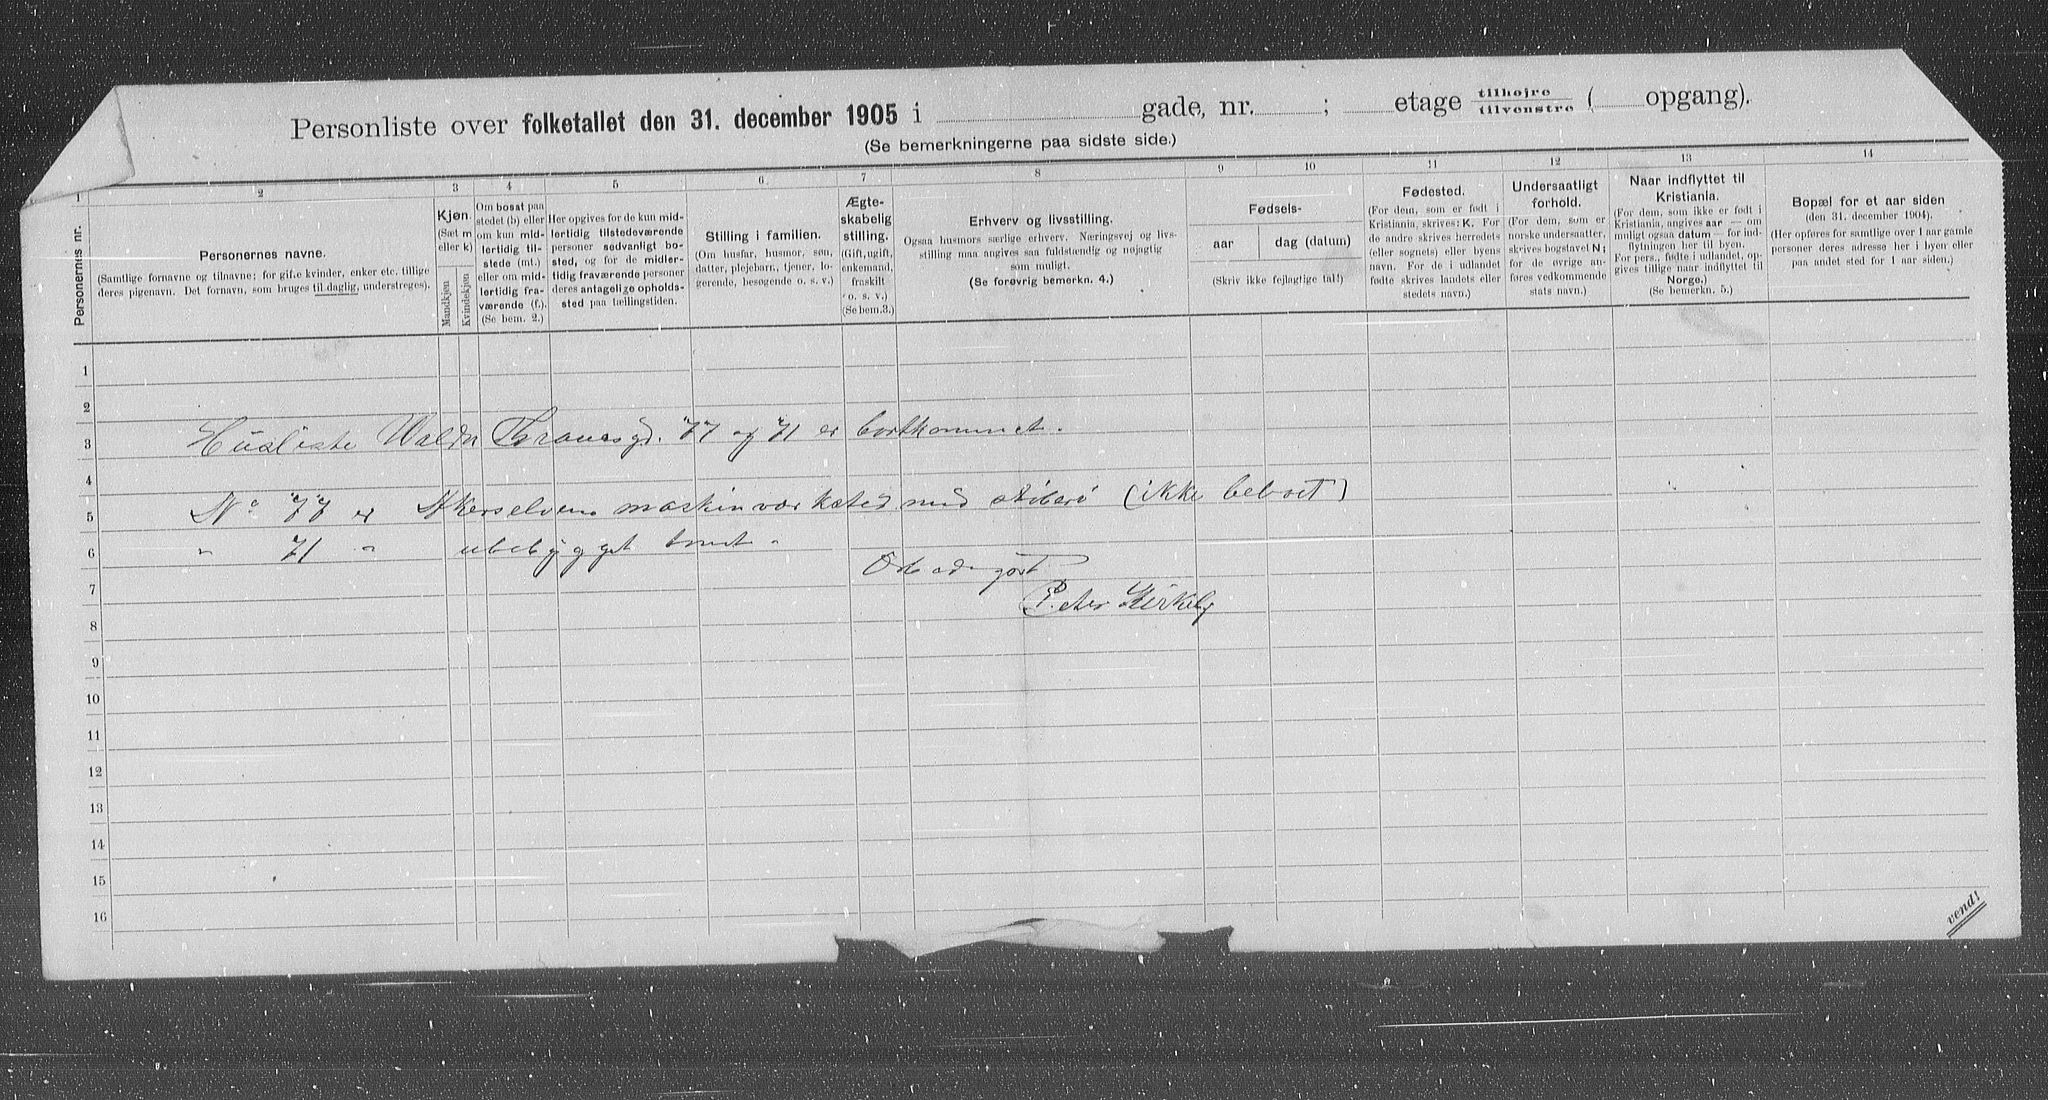 Personliste over folketallet den 31. december 1905 i gade, nr. ; etage tilhøjre tilvenstre ( opgang).
(Se bemerkningerne paa sidste side.)
1 2 3 4 5 6 7 8 9 10 11 12 13 14
Personernes nr.
Personernes navne.
(Samtlige fornavne og tilnavne; for gifte kvinder, enker etc. tillige
deres pigenavn. Det fornavn, som bruges til daglig, understreges).
Kjøn.
(Sæt m
eller k)
Mandkjøn
Kvindekjøn
Om bosat paa
stedet (b) eller
om kun mid-
lertidig til-
stede (mt.)
eller om mid-
lertidig fra-
værende (f.).
(Se bem. 2.)
Her opgives for de kun mid-
lertidig tilstedeværende
personer sedvanligt bo-
sted, og for de midler-
tidig fraværende personer
deres antagelige opholds-
sted paa tællingstiden.
Stilling i familien.
(Om husfar, husmor, søn,
datter, plejebarn, tjener, lo-
gerende, besøgende o. s. v.)
Ægte-
skabelig
stilling.
(Gift, ugift,
enkemand,
fraskilt
o. s. v.)
(Se bem.3.)
Erhverv og livsstilling.
Ogsaa husmors særlige erhverv. Næringsvej og livs-
stilling maa angives saa fuldstændig og nøjagtig
som muligt.
(Se forøvrig bemerkn. 4.)
Fødsels-
aar dag (datum)
(Skriv ikke fejlagtige tal!)
Fødested.
(For dem, som er født i
Kristiania, skrives: K. For
de andre skrives herredets
(eller sognets) eller byens
navn. For de i udlandet
fødte skrives landets eller
stedets navn.)
Undersaatligt
forhold.
(For dem, som er
norske undersaatter,
skrives bogstavet N;
for de øvrige an-
føres vedkommende
stats navn.)
Naar indflyttet til
Kristiania.
(For dem, som ikke er født i
Kristiania, angives aar — om
muligt ogsaa datum — for ind-
flytningen her til byen.
For pers., fødte i udlandet, op-
gives tillige naar indflyttet til
Norge.)
(Se bemerkn. 5.)
Bopæl for et aar siden
(den 31. december 1904).
(Her opføres for samtlige over 1 aar gamle
personer deres adresse her i byen eller
paa andet sted for 1 aar siden.)
1
2
3 Husliste Waldm Thranesgd. 77 og 71 er bortkommet.
4
5 No 77 er Akerselvens maskinværksted med støberi (ikke beboet)
6 " 71 " ubebygget tomt.
7
Peter Kirkeby
8
9
10
11
12
13
14
15
16
vend!